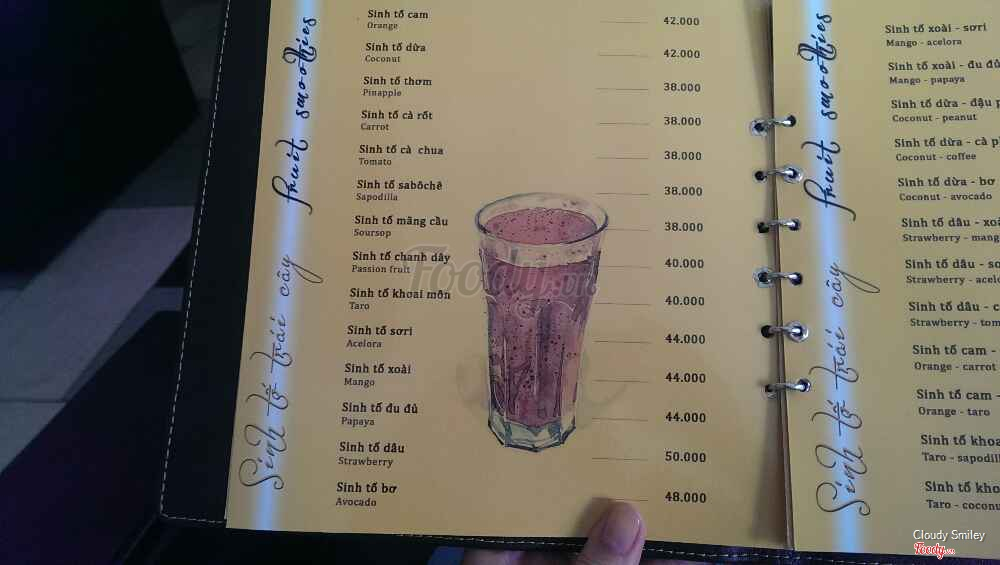 Sinh tố trái cây fruit smoothies
Sinh tố cam
Orange
42.000
Sinh tố dừa
Coconut
42.000
Sinh tố thơm
Pinapple
38.000
Sinh tố cà rốt
Carrot
38.000
Sinh tố cà chua
Tomato
38.000
Sinh tố sabôchê
Sapodilla
38.000
Sinh tố mãng cầu
Soursop
38.000
Sinh tố chanh dây
Passion fruit
40.000
Sinh tố khoai môn
Taro
40.000
Sinh tố sơri
Acelora
44.000
Sinh tố xoài
Mango
44.000
Sinh tố đu đủ
Papaya
44.000
Sinh tố dâu
Strawberry
50.000
Sinh tố bơ
Avocado
48.000
Foody.vn
Sinh tố trái cây fruit smoothies
Sinh tố xoài - sơri
Mango - acelora
Sinh tố xoài - đu đủ
Mango - papaya
Sinh tố dừa - đậu
Coconut - peanut
Sinh tố dừa - cà
Coconut - coffee
Sinh tố dừa - bơ
Coconut - avocado
Sinh tố dâu -
Strawberry -
Sinh tố dâu -
Strawberry -
Sinh tố dâu -
Strawberry -
Sinh tố cam -
Orange - carrot
Sinh tố cam -
Orange - taro
Sinh tố
Taro -
Sinh tố
Taro -
Cloudy Smiley
Foody.vn